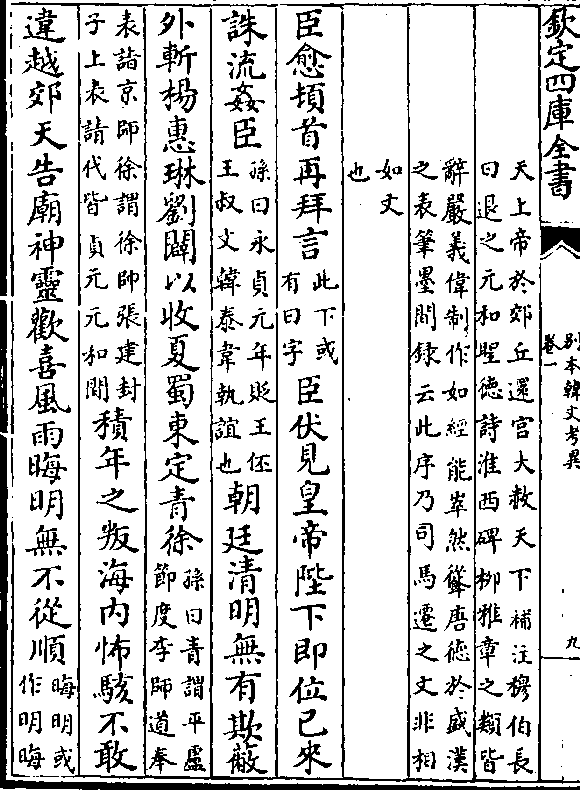 欽定四庫全書
別本韓文考異
卷一
九
天上帝於郊丘還宮大赦天下補注穆伯長
曰退之元和聖德詩淮西碑柳雅章之類皆
辭嚴義偉制作如經能崒然聳唐德於盛漢
之表筆墨間録云此序乃司馬遷之文非相
如文
也
臣愈頓首再拜言此下或有曰字臣伏見皇帝陛下即位已來
誅流姦臣孫曰永貞元年貶王伾王叔文韓泰韋執誼也朝廷清明無有欺蔽
外斬楊惠琳劉闢以收夏蜀東定青徐孫曰青謂平盧節度李師道奉
表詣京師徐謂徐師張建封子上表請代皆貞元元和間積年之叛海内怖駭不敢
違越郊天告廟神靈歡喜風雨晦明無不從順晦明或作明晦